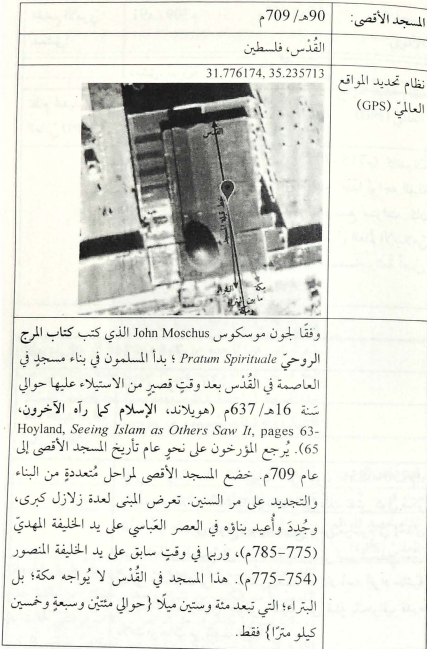 المسجد الأقصى:
90هـ/ 709م
القُدْس، فلسطين
نظام تحديد المواقع
العالميّ (GPS)
31.776174, 35.235713
القدس
خط قبلة المسجد
مكة
وفقًا لجون موسكوس John Moschus الذي كتب كتاب المرج
الروحيّ Pratum Spirituale ؛ بدأ المسلمون في بناء مسجدٍ في
العاصمة في القُدْس بعد وقتٍ قصيرٍ من الاستيلاء عليها حوالي
سَنة 16هـ/ 637م (هويلاند، الإسلام كما رآه الآخرون،
Hoyland, Seeing Islam as Others Saw It, pages 63-
65). يُرجع المؤرخون على نحوٍ عام تأريخ المسجد الأقصى إلى
عام 709م. خضع المسجد الأقصى لمراحل مُتعددةٍ من البناء
والتجديد على مر السنين. تعرض المبنى لعدة زلازل كبرى،
وجُدِدَ وأُعيد بناؤه في العصر العَباسي على يد الخليفة المهديّ
(775–785م)، وربما في وقتٍ سابق على يد الخليفة المنصور
(754–775م). هذا المسجد في القُدْس لا يُواجه مكة؛ بل
البتراء؛ التي تبعد مئة وستين ميلًا {حوالي مئتيْن وسبعةٍ وخمسين
كيلو مترًا} فقط.